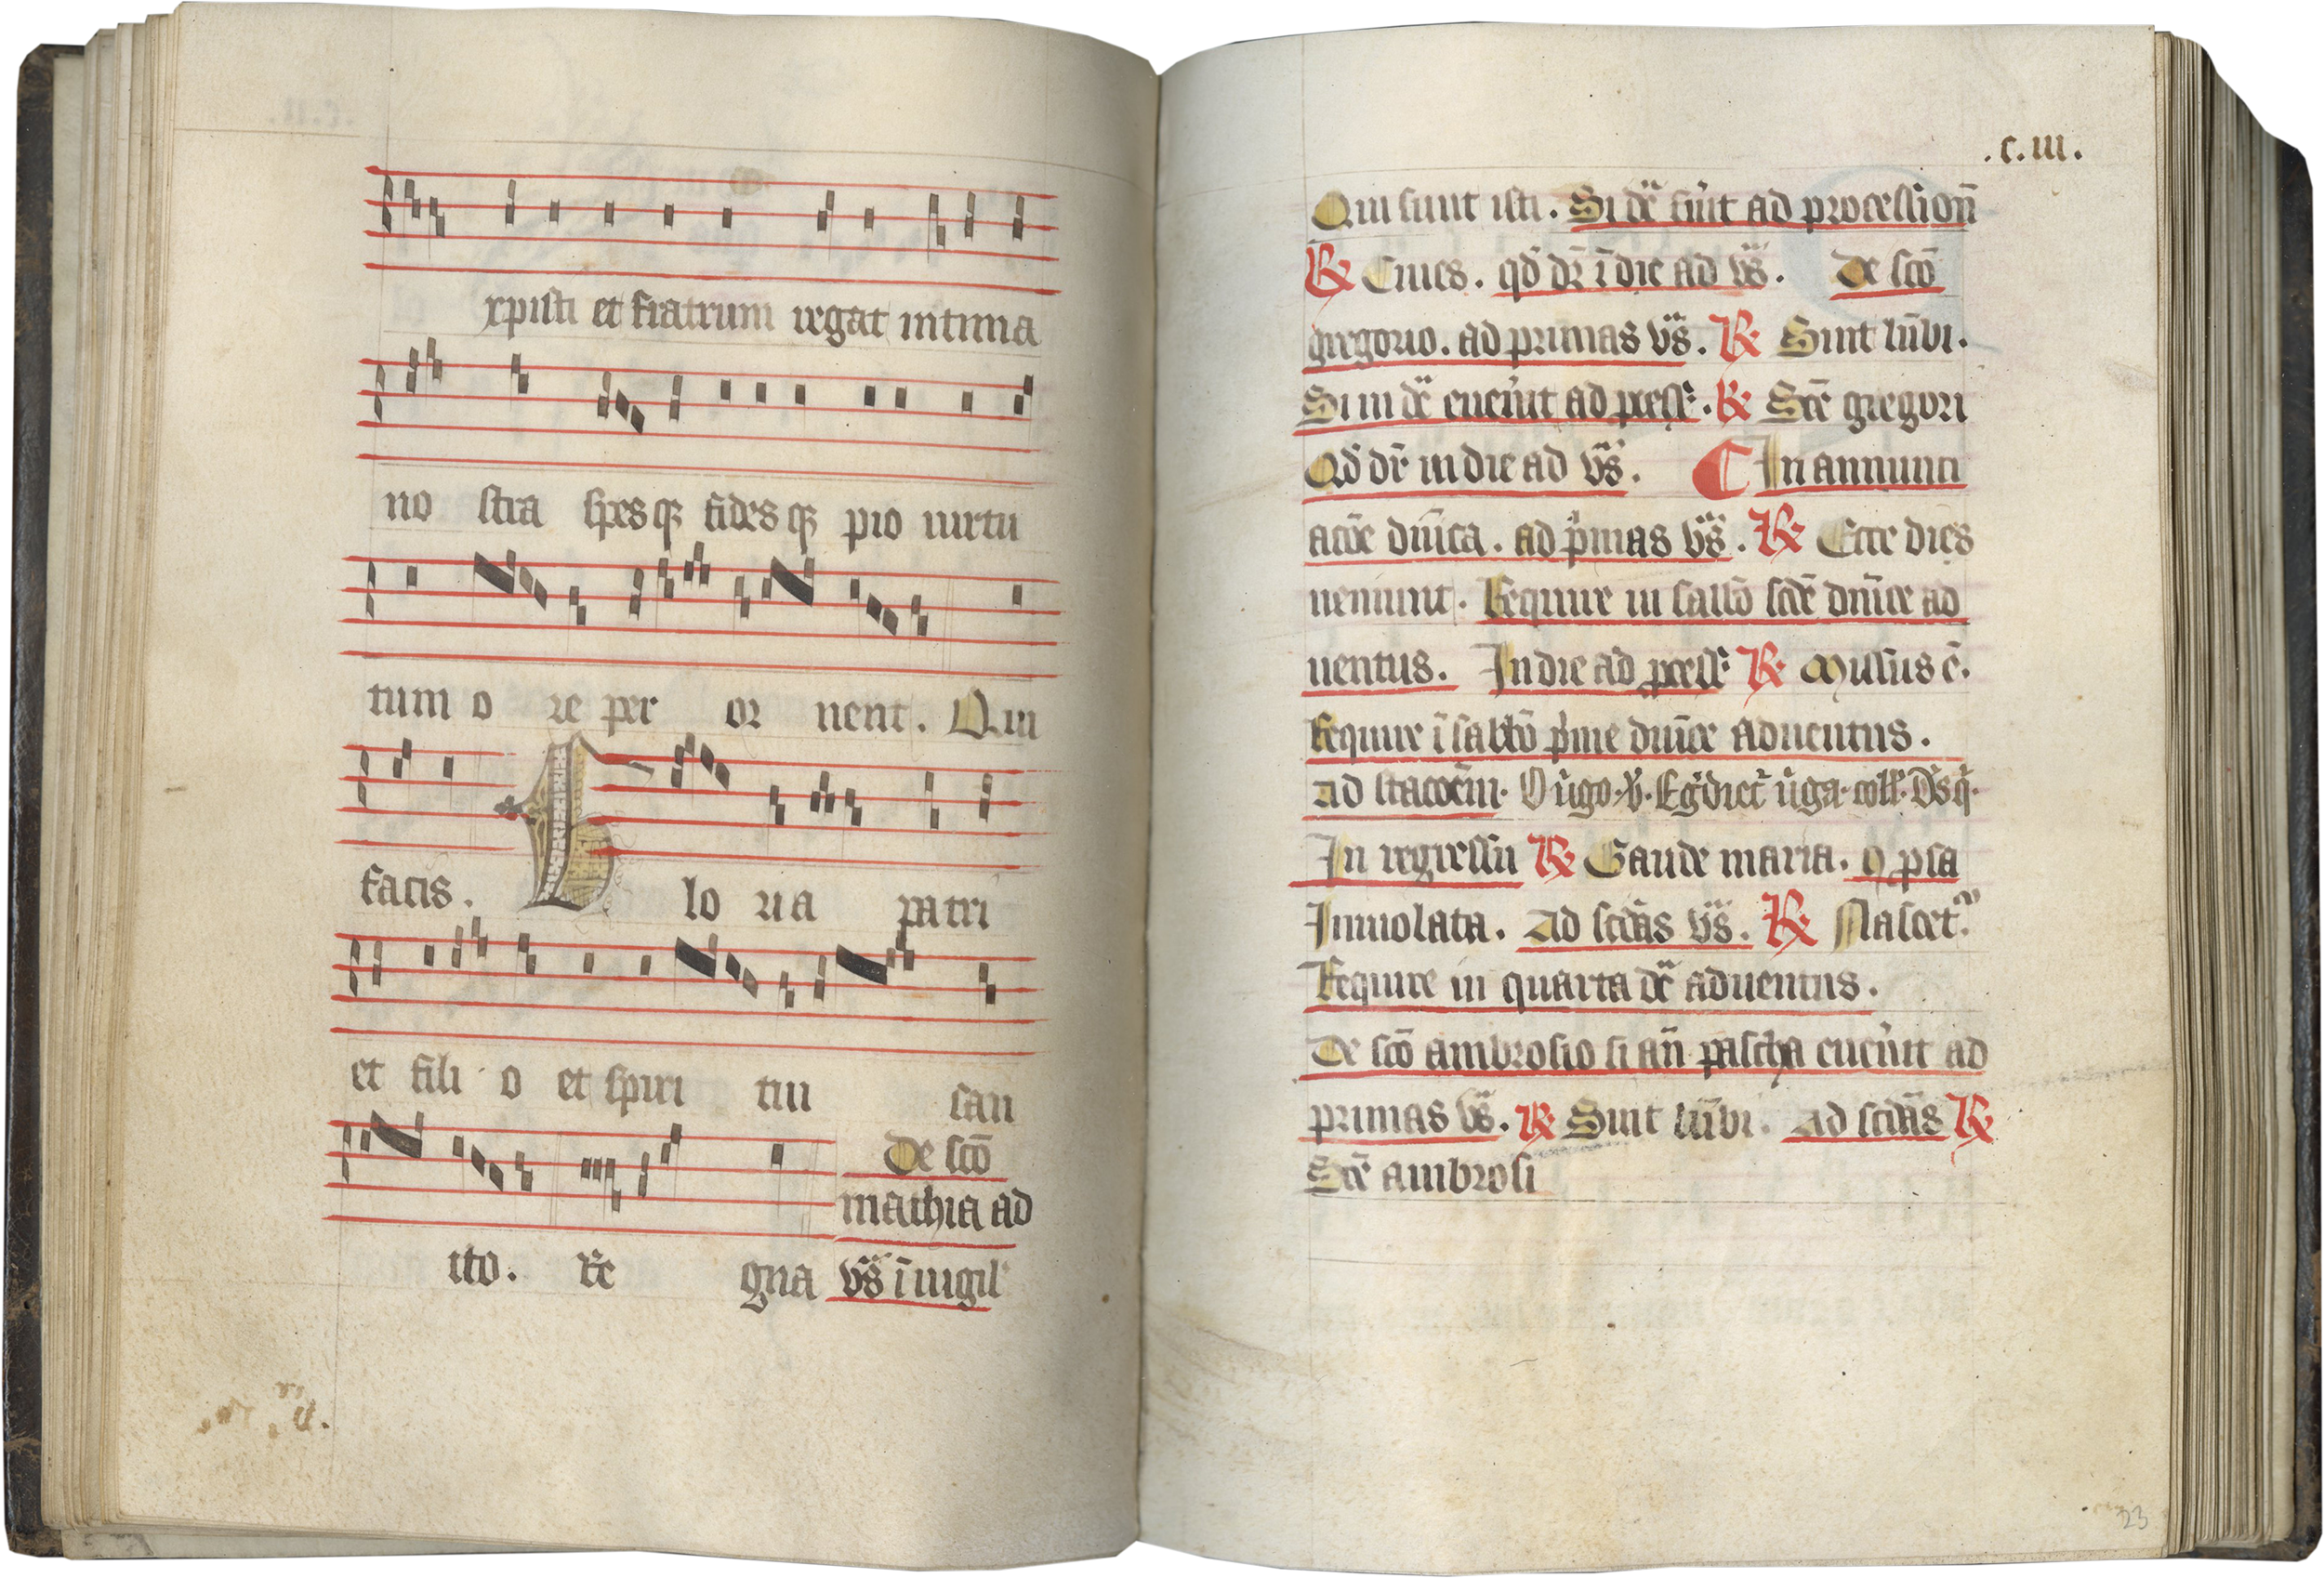 xpisti et fratrum regat intima
no stra spesq3 fidesq3 pio uirtu
tum o re per or nent. Qui
facis. Glo ria patri
et fili o et spiri tui san
De scō
mathia ad
ito. Re gna vs̄ ī uigil'
.c.iii.
Qui sunt isti. Si dc̄ fūit ad processionē
R̷ Ciues. qd̄ dr̄ ī die ad vs̄. De scō
gregorio. ad primas vs̄. R̷ Sint lūbi.
Si in dc̄ euen̄it ad process. R̷ Scē gregori
Qd̄ dr̄ in die ad vs̄. In annunti
acōe dn̄ica. ad p̄mas vs̄. R̷ Ecce dies
ueniunt. Require in sabbō scd̄e dn̄ice ad
uentus. In die ad process R̷ Missus ē.
Require ī sabbō p̄me dn̄ice aduentus.
ad stacōem. O u̓go. v̷. Egdiet̓ u̓ga. coll̓. Ds̄ q̓.
In regressu R̷ Gaude maria. q psa
Inuiolata. Ad scd̄as vs̄. R̷ Nascet̓.
Require in quarta dc̄ aduentus.
De scō ambrosio si an̄ pascha euen̄it ad
primas vs̄. R̷ Sint lūbi. ad scd̄as R̷
Scē ambrosi
23